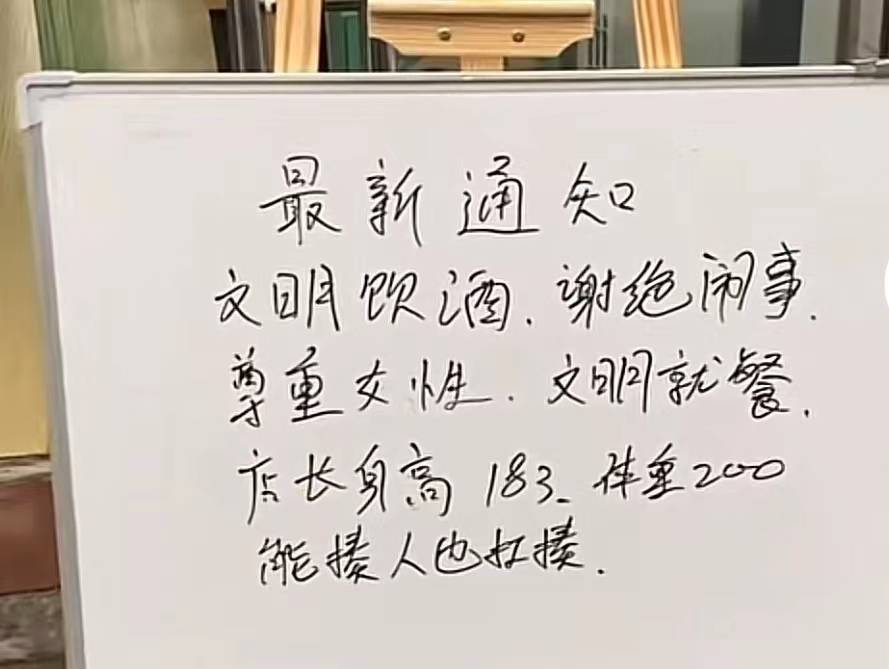 最新通知
文明饮酒.谢绝闹事.
尊重女性.文明就餐.
店长身高183.体重200
能揍人也扛揍.